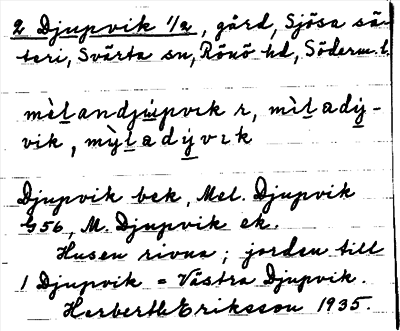 2 Djupvik 1/2, gård, Sjösa sä-
teri, Svärta sn, Rönö hd, Söderm. l.
mèlandjúpvɩk r, mìladý-
vik, mỳladývɩk
Djupvik bek, Mel. Djupvik
G56, M. Djupvik ek.
Husen rivna; jorden till
1 Djupvik = Västra Djupvik.
Herberth Eriksson 1935.